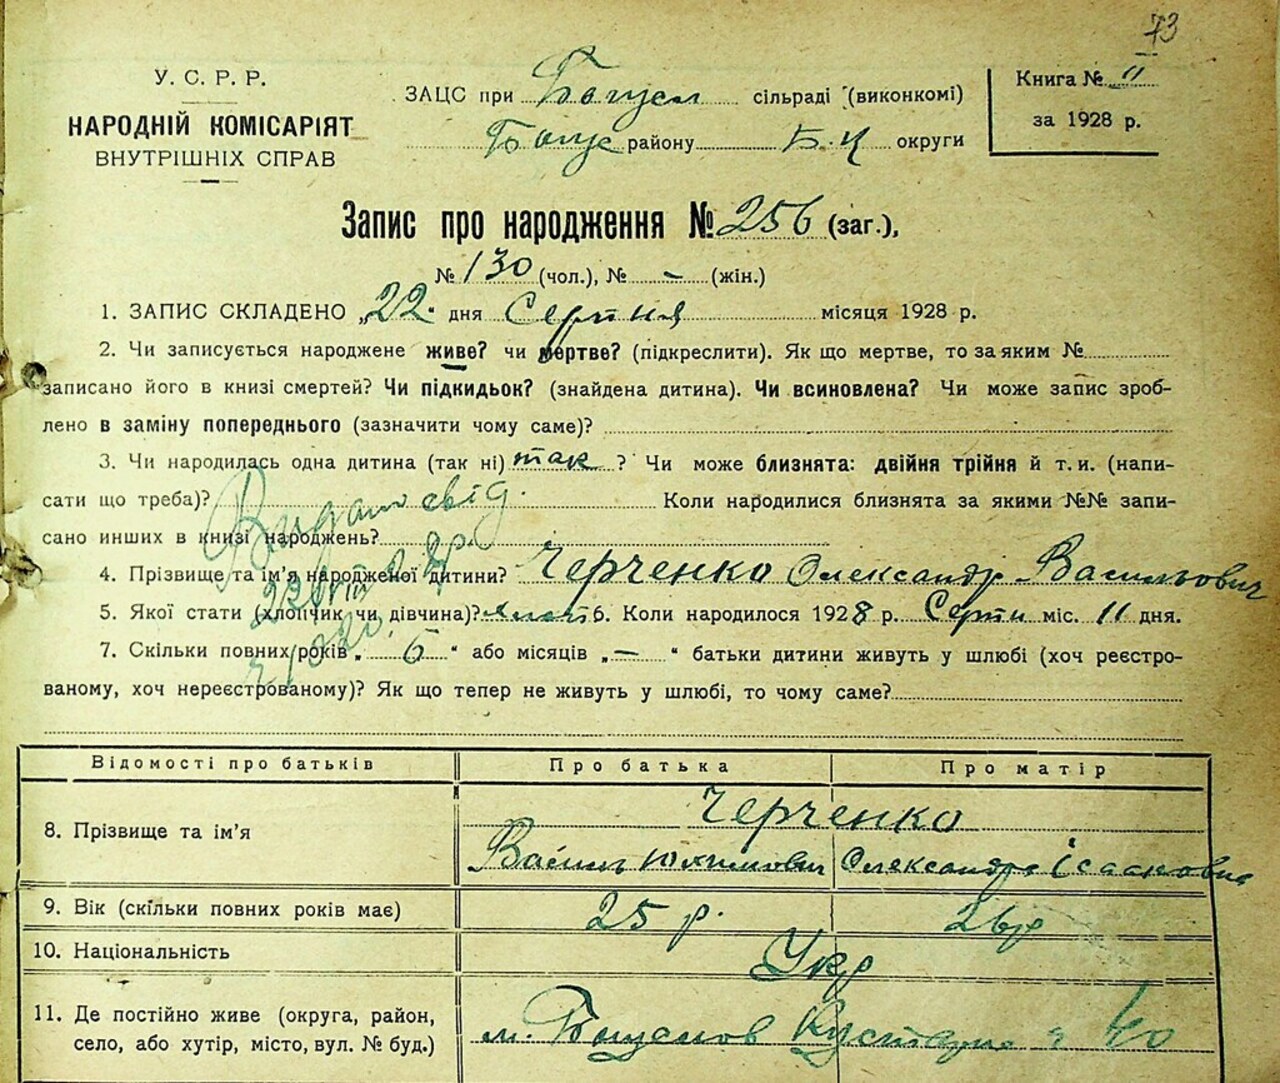 73
У. С. Р. Р.
НАРОДНІЙ КОМІСАРІЯТ
ВНУТРІШНІХ СПРАВ
ЗАЦС при Богусл сільраді (виконкомі)
Богус району Б.Ц округи
Книга № 11
за 1928 р.
Запис про народження № 256 (заг.),
№ 130 (чол.), № - (жін.)
1. ЗАПИС СКЛАДЕНО „22" дня Серпня місяця 1928 р.
2. Чи записується народжене живе? чи мертве? (підкреслити). Як що мертве, то за яким №
записано його в книзі смертей? Чи підкидьок? (знайдена дитина). Чи всиновлена? Чи може запис зроб-
лено в заміну попереднього (зазначити чому саме)?
3. Чи народилась одна дитина (так ні) так ? Чи може близнята: двійня трійня й т. и. (напи-
сати що треба)? Видано свід. Коли народилися близнята за якими №№ запи-
сано инших в книзі народжень?
4. Прізвище та ім'я народженої дитини? Черченко Олександр Васильович
5. Якої стати (хлопчик чи дівчина)? 6. Коли народилося 1928 р. Серпн міс. 11 дня.
7. Скільки повних років „ 6 " або місяців „ — " батьки дитини живуть у шлюбі (хоч реєстро-
ваному, хоч нереєстрованому)? Як що тепер не живуть у шлюбі, то чому саме?
Відомості про батьків Про батька Про матір
8. Прізвище та ім'я Черченко
Василь Юхимович Олександра Ісааковна
9. Вік (скільки повних років має) 25 р. 26р
10. Національність Укр
11. Де постійно живе (округа, район,
село, або хутір, місто, вул. № буд.) м. 40